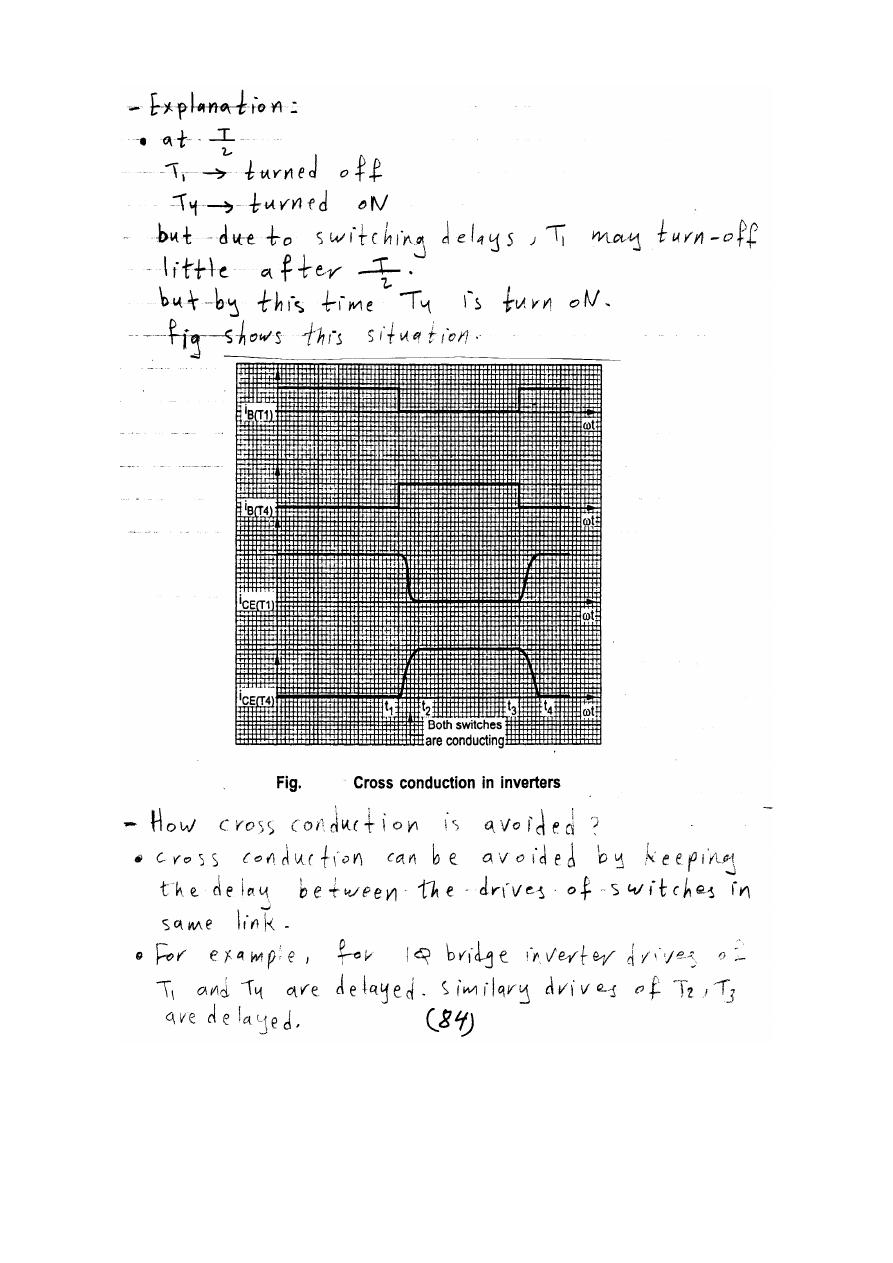 - Explanation :
• at T/2
T1 → turned off
T4 → turned ON
but due to switching delays, T1 may turn-off
little after T/2.
but by this time T4 is turn ON.
fig shows this situation.
iB(T1)
ωt
iB(T4)
ωt
iCE(T1)
ωt
iCE(T4)
t1 t2 t3 t4 ωt
Both switches
are conducting
Fig. Cross conduction in inverters
- How cross conduction is avoided ?
• cross conduction can be avoided by keeping
the delay between the drives of switches in
same link.
• For example, for 1Φ bridge inverter drives of
T1 and T4 are delayed. Similary drives of T2, T3
are delayed.
(84)